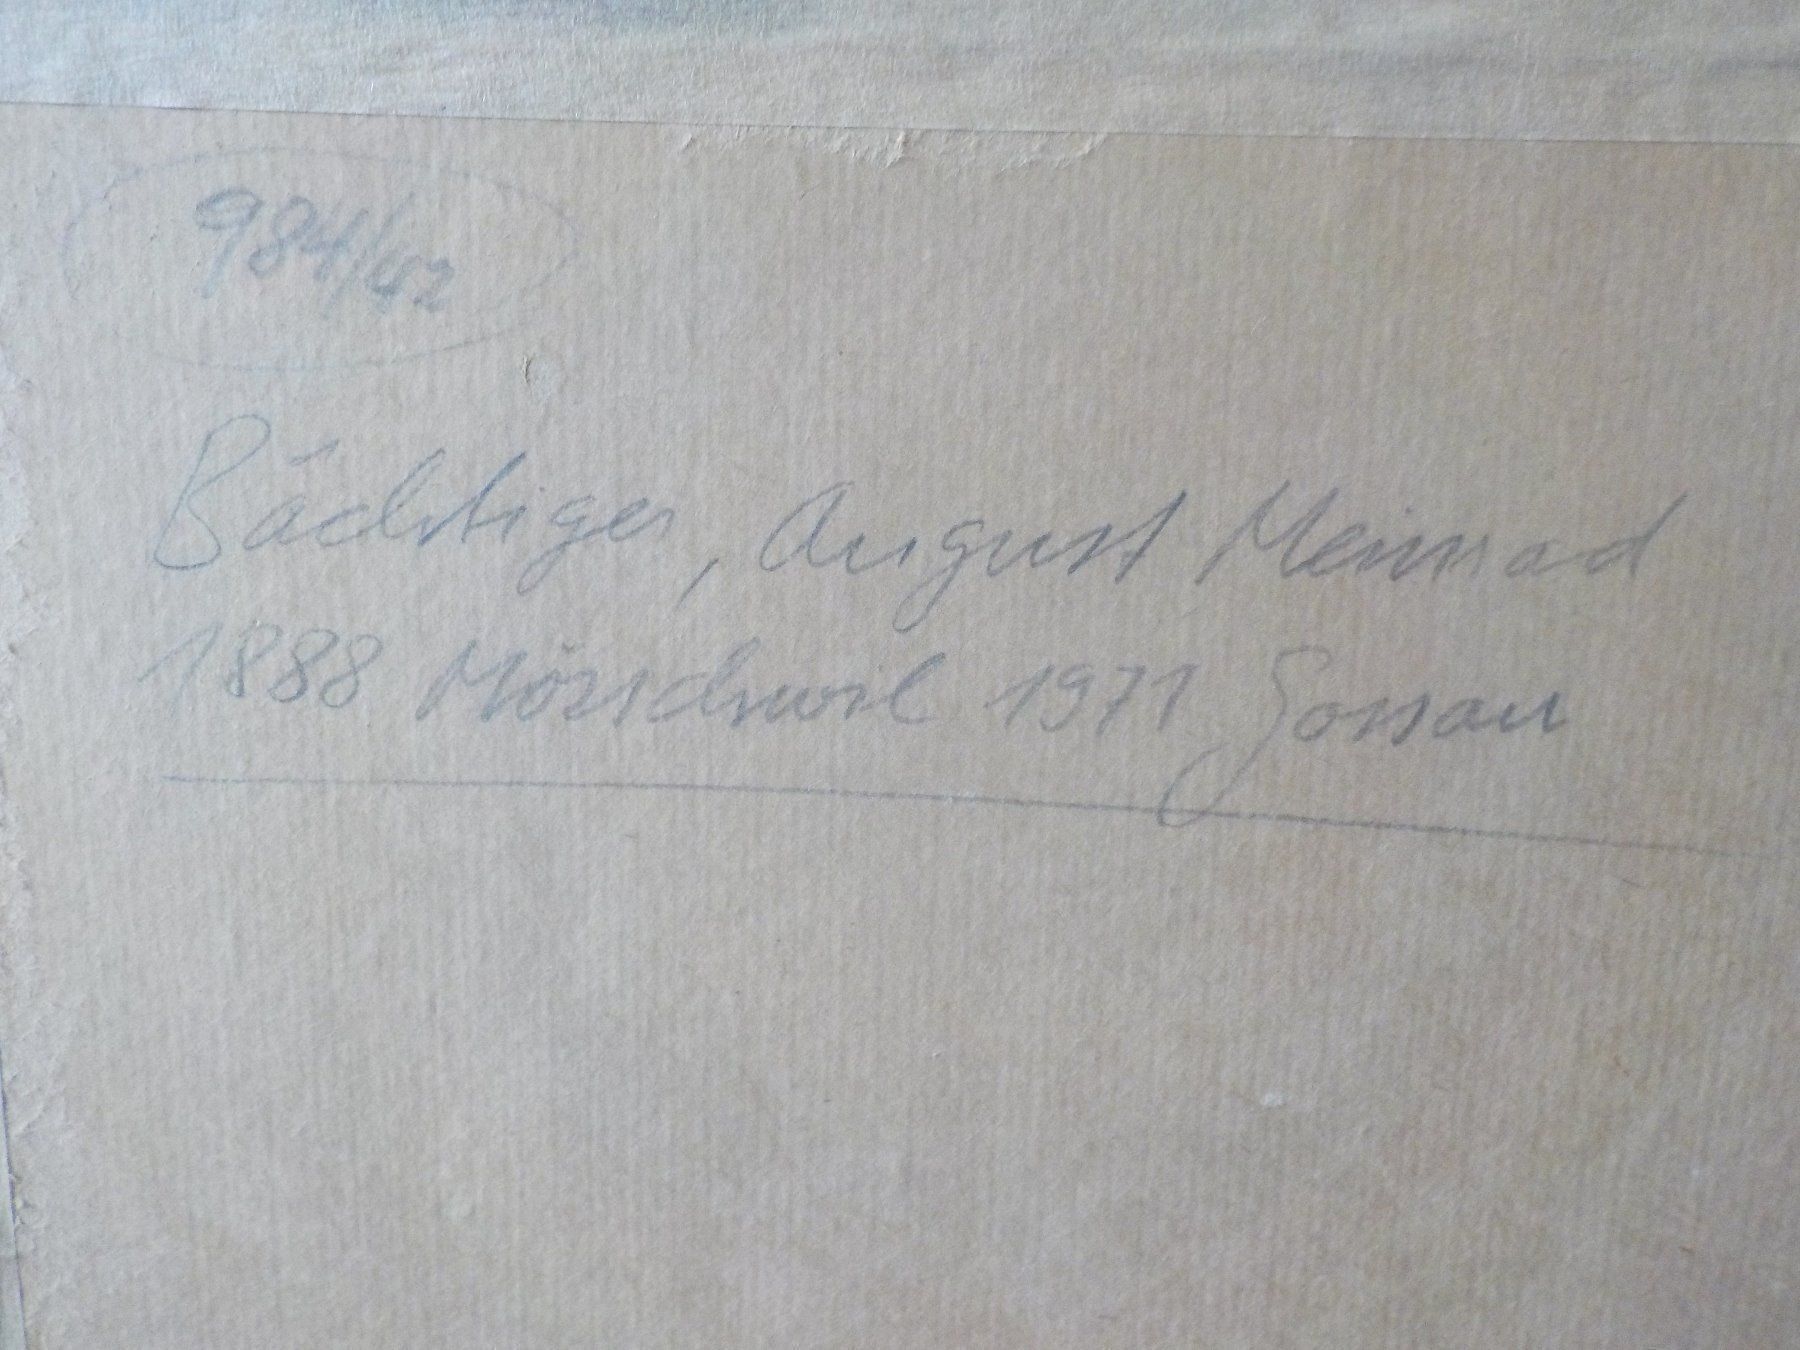 984/42
Bächtiger, August Meinrad
1888 Mörschwil 1971 Gossau